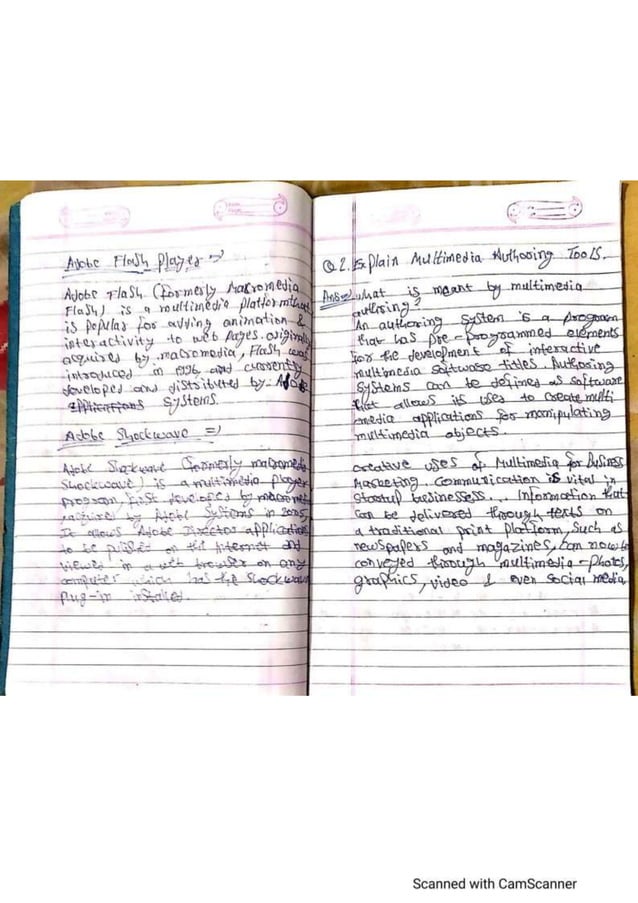 Adobe Flash Player =>
Adobe Flash (formerly Macromedia
Flash) is a multimedia platform that
is popular for adding animation &
interactivity to web pages. originally
acquired by macromedia, Flash was
introduced in 1996 and currently
developed and distributed by Adobe
applications Systems.
Adobe Shockwave =>
Adobe Shockwave (formerly macromedia
Shockwave) is a multimedia player
program, first developed by macromedia
acquired by Adobe Systems in 2005,
It allows Adobe Director applications
to be on the Internet and
viewed in a web browser on any
computer which has the Shockwave
Plug-in installed.
Q 2. Explain Multimedia Authoring Tools.
Ans=> what is meant by multimedia
authoring?
An authoring System is a program
that has pre-programmed elements
for the development of interactive
multimedia software titles. Authoring
Systems can be defined as software
that allows its uses to create multi
media applications for manipulating
multimedia objects.
creative uses of Multimedia for Business
Marketing. Communication is vital in
startup businessess... Information that
can be delivered through texts on
a traditional print platform, such as
newspapers and magazines, can now be
conveyed through multimedia - photos,
graphics, video & even social media
Scanned with CamScanner